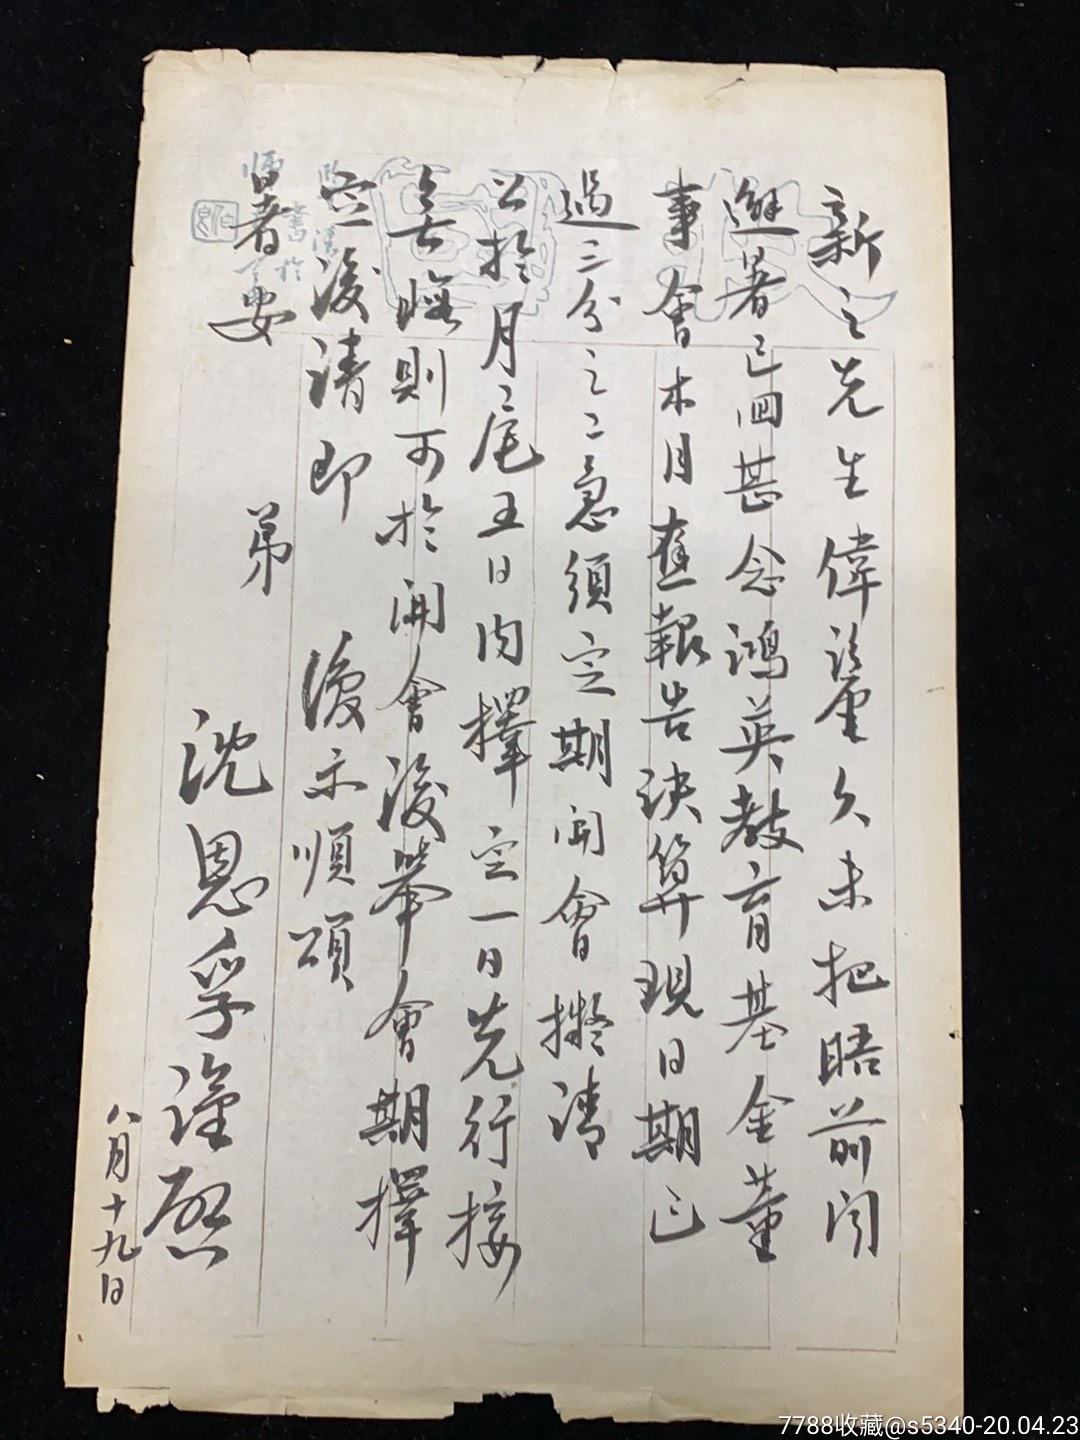 新之先生偉鑒久未把晤前聞
避暑已回甚念鴻英教育基金董
事會本月報告決算現日期已
過三分之二急須定期開會擬請
公於月尾五日內擇定一日先行接
則可於開會後舉會期擇
定後請即 復示順頌
暑安
弟 沈恩孚謹啟
八月十九日
7788收藏@s5340-20.04.23